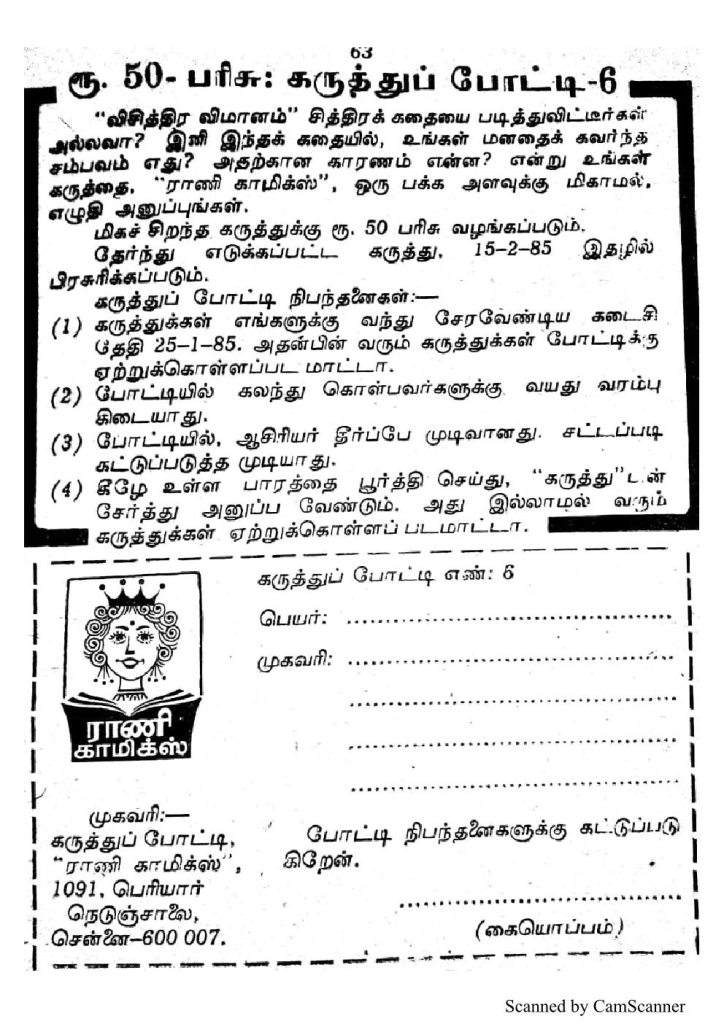 63
ரூ. 50- பரிசு: கருத்துப் போட்டி-6
"விசித்திர விமானம்" சித்திரக் கதையை படித்துவிட்டீர்கள்
அல்லவா? இனி இந்தக் கதையில், உங்கள் மனதைக் கவர்ந்த
சம்பவம் எது? அதற்கான காரணம் என்ன? என்று உங்கள்
கருத்தை, "ராணி காமிக்ஸ்", ஒரு பக்க அளவுக்கு மிகாமல்,
எழுதி அனுப்புங்கள்.
மிகச் சிறந்த கருத்துக்கு ரூ. 50 பரிசு வழங்கப்படும்.
தேர்ந்து எடுக்கப்பட்ட கருத்து, 15-2-85 இதழில்
பிரசுரிக்கப்படும்.
கருத்துப் போட்டி நிபந்தனைகள்:—
(1) கருத்துக்கள் எங்களுக்கு வந்து சேரவேண்டிய கடைசி
தேதி 25-1-85. அதன்பின் வரும் கருத்துக்கள் போட்டிக்கு
ஏற்றுக்கொள்ளப்பட மாட்டா.
(2) போட்டியில் கலந்து கொள்பவர்களுக்கு வயது வரம்பு
கிடையாது.
(3) போட்டியில், ஆசிரியர் தீர்ப்பே முடிவானது. சட்டப்படி
கட்டுப்படுத்த முடியாது.
(4) கீழே உள்ள பாரத்தை பூர்த்தி செய்து, "கருத்து"டன்
சேர்த்து அனுப்ப வேண்டும். அது இல்லாமல் வரும்
கருத்துக்கள் ஏற்றுக்கொள்ளப் படமாட்டா.
கருத்துப் போட்டி எண்: 6
பெயர்: ........................................
முகவரி: ........................................
........................................
........................................
........................................
ராணி
காமிக்ஸ்
முகவரி:—
கருத்துப் போட்டி,
"ராணி காமிக்ஸ்",
1091, பெரியார்
நெடுஞ்சாலை,
சென்னை–600 007.
போட்டி நிபந்தனைகளுக்கு கட்டுப்படு
கிறேன்.
........................................
(கையொப்பம்)
Scanned by CamScanner